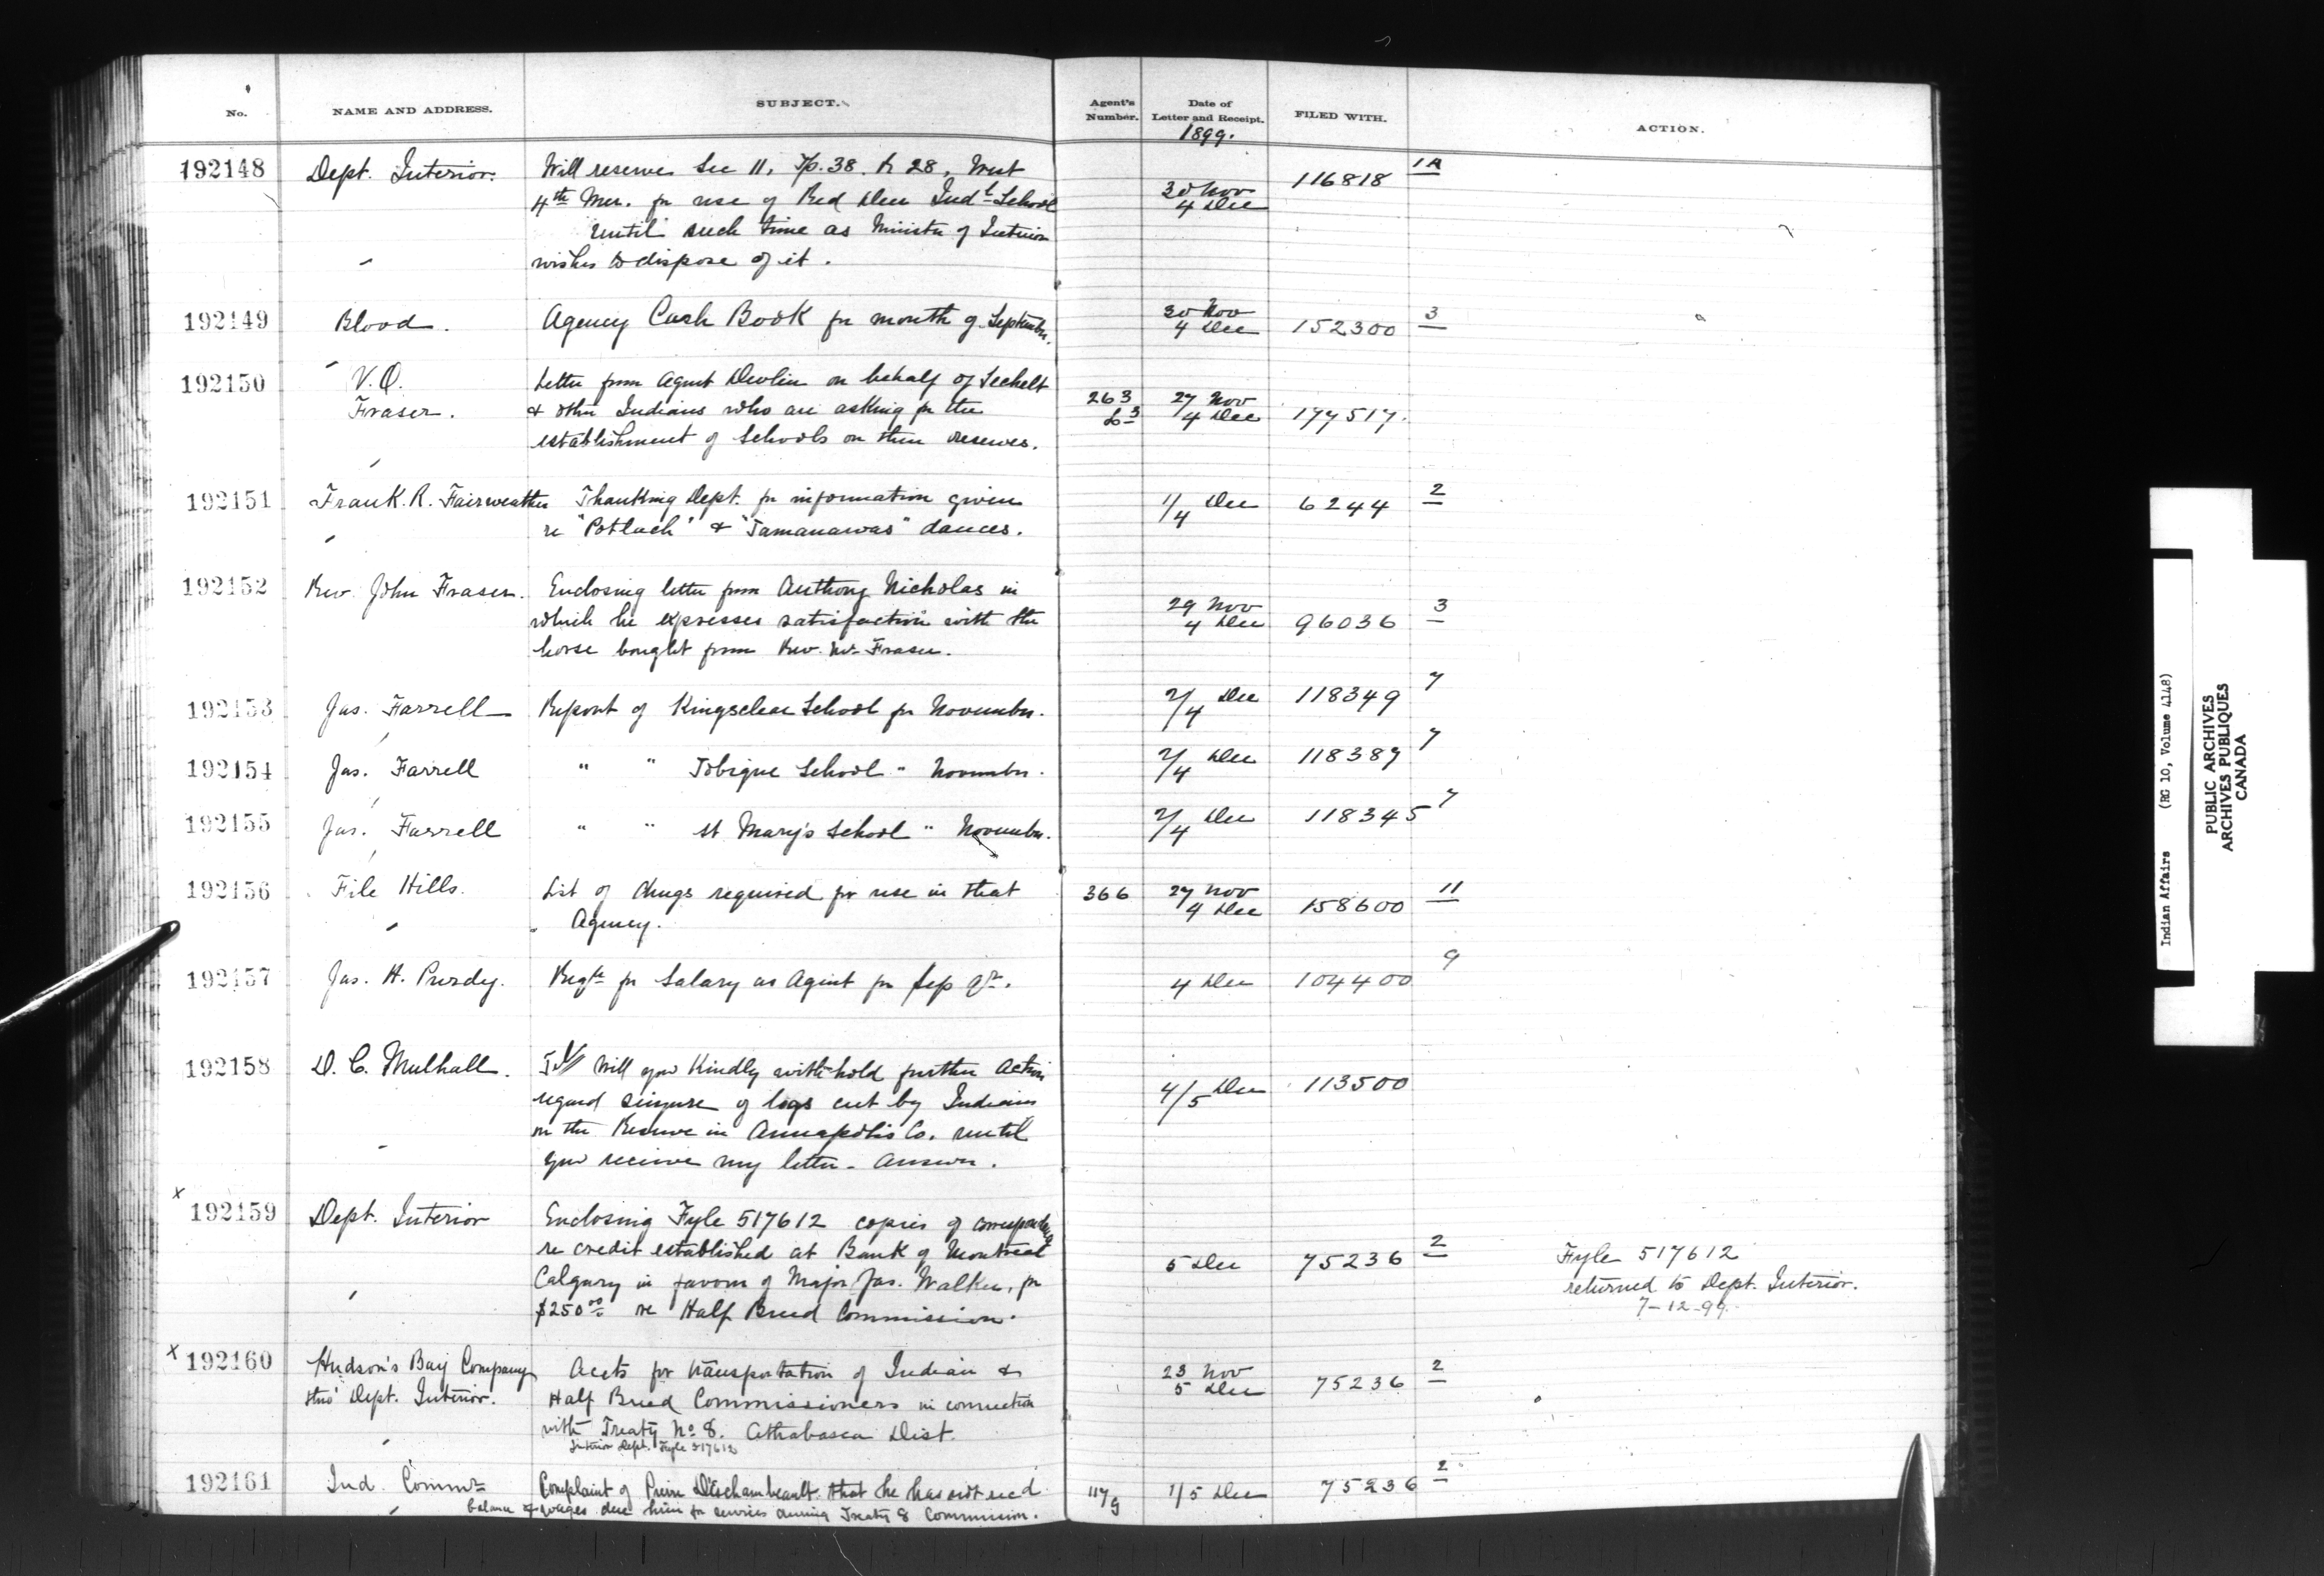 No.
NAME AND ADDRESS.
SUBJECT.
Agent's Number.
Date of Letter and Receipt.
1899.
FILED WITH.
ACTION.
192148 Dept. Interior. Will reserve Sec 11. Tp. 38. R 28, West 30 Nov 116818 1A
4th Mer. for use of Red Deer Indl School 4 Dec
until such time as Minister of Interior
wishes to dispose of it.
192149 Blood. Agency Cash Book for month of September. 30 Nov 4 Dec 152300 3
192150 V.O. Letter from Agent Devlin on behalf of Sechelt
Fraser. & other Indians who are asking for the 263 27 Nov 4 Dec 177517.
establishment of Schools on their reserves.
192151 Frank. R. Fairweather Thanking Dept. for information given 1/4 Dec 6244 2
re "Potlach" & "Tamanawas" dances.
192152 Rev John Fraser. Enclosing letter from Anthony Nicholas in
which he expresses satisfaction with the 29 Nov 4 Dec 96036 3
horse bought from Rev. Mr. Fraser.
192153 Jas. Farrell Report of Kingsclear School for November. 2/4 Dec 118349 7
192154 Jas. Farrell " " Tobique School " November. 2/4 Dec 118387 7
192155 Jas. Farrell " " St Mary's School " November. 2/4 Dec 118345 7
192156 File Hills. List of drugs required for use in that 366 27 Nov 4 Dec 158600 11
Agency.
192157 Jas. H. Purdy. Reqte for Salary as Agent for Sep qr. 4 Dec 104400 9
192158 D. C. Mulhall. Will you Kindly withhold further action
regard seizure of logs cut by Indians 4/5 Dec 113500
on the Reserve in Annapolis Co. until
you receive my letter - Answer.
x 192159 Dept. Interior Enclosing Fyle 517612 copies of correspondence
re credit established at Bank of Montreal 5 Dec 75236 2 Fyle 517612
Calgary in favour of Major Jas. Walker, for returned to Dept. Interior.
$250 00 re Half Breed Commission. 7-12-99.
x 192160 Hudson's Bay Company Accts for transportation of Indian & 23 Nov 5 Dec 75236 2
thro' Dept. Interior. Half Breed Commissioners in connection
with Treaty No 8. Athabasca Dist.
Interior Dept. Fyle 517612
192161 Ind. Commr Complaint of Pierre D'Eschambeault that he has not recd 117/9 1/5 Dec 75236 2
balance of wages due him for services during Treaty 8 Commission.
Indian Affairs (RG 10, Volume 4148)
PUBLIC ARCHIVES
ARCHIVES PUBLIQUES
CANADA